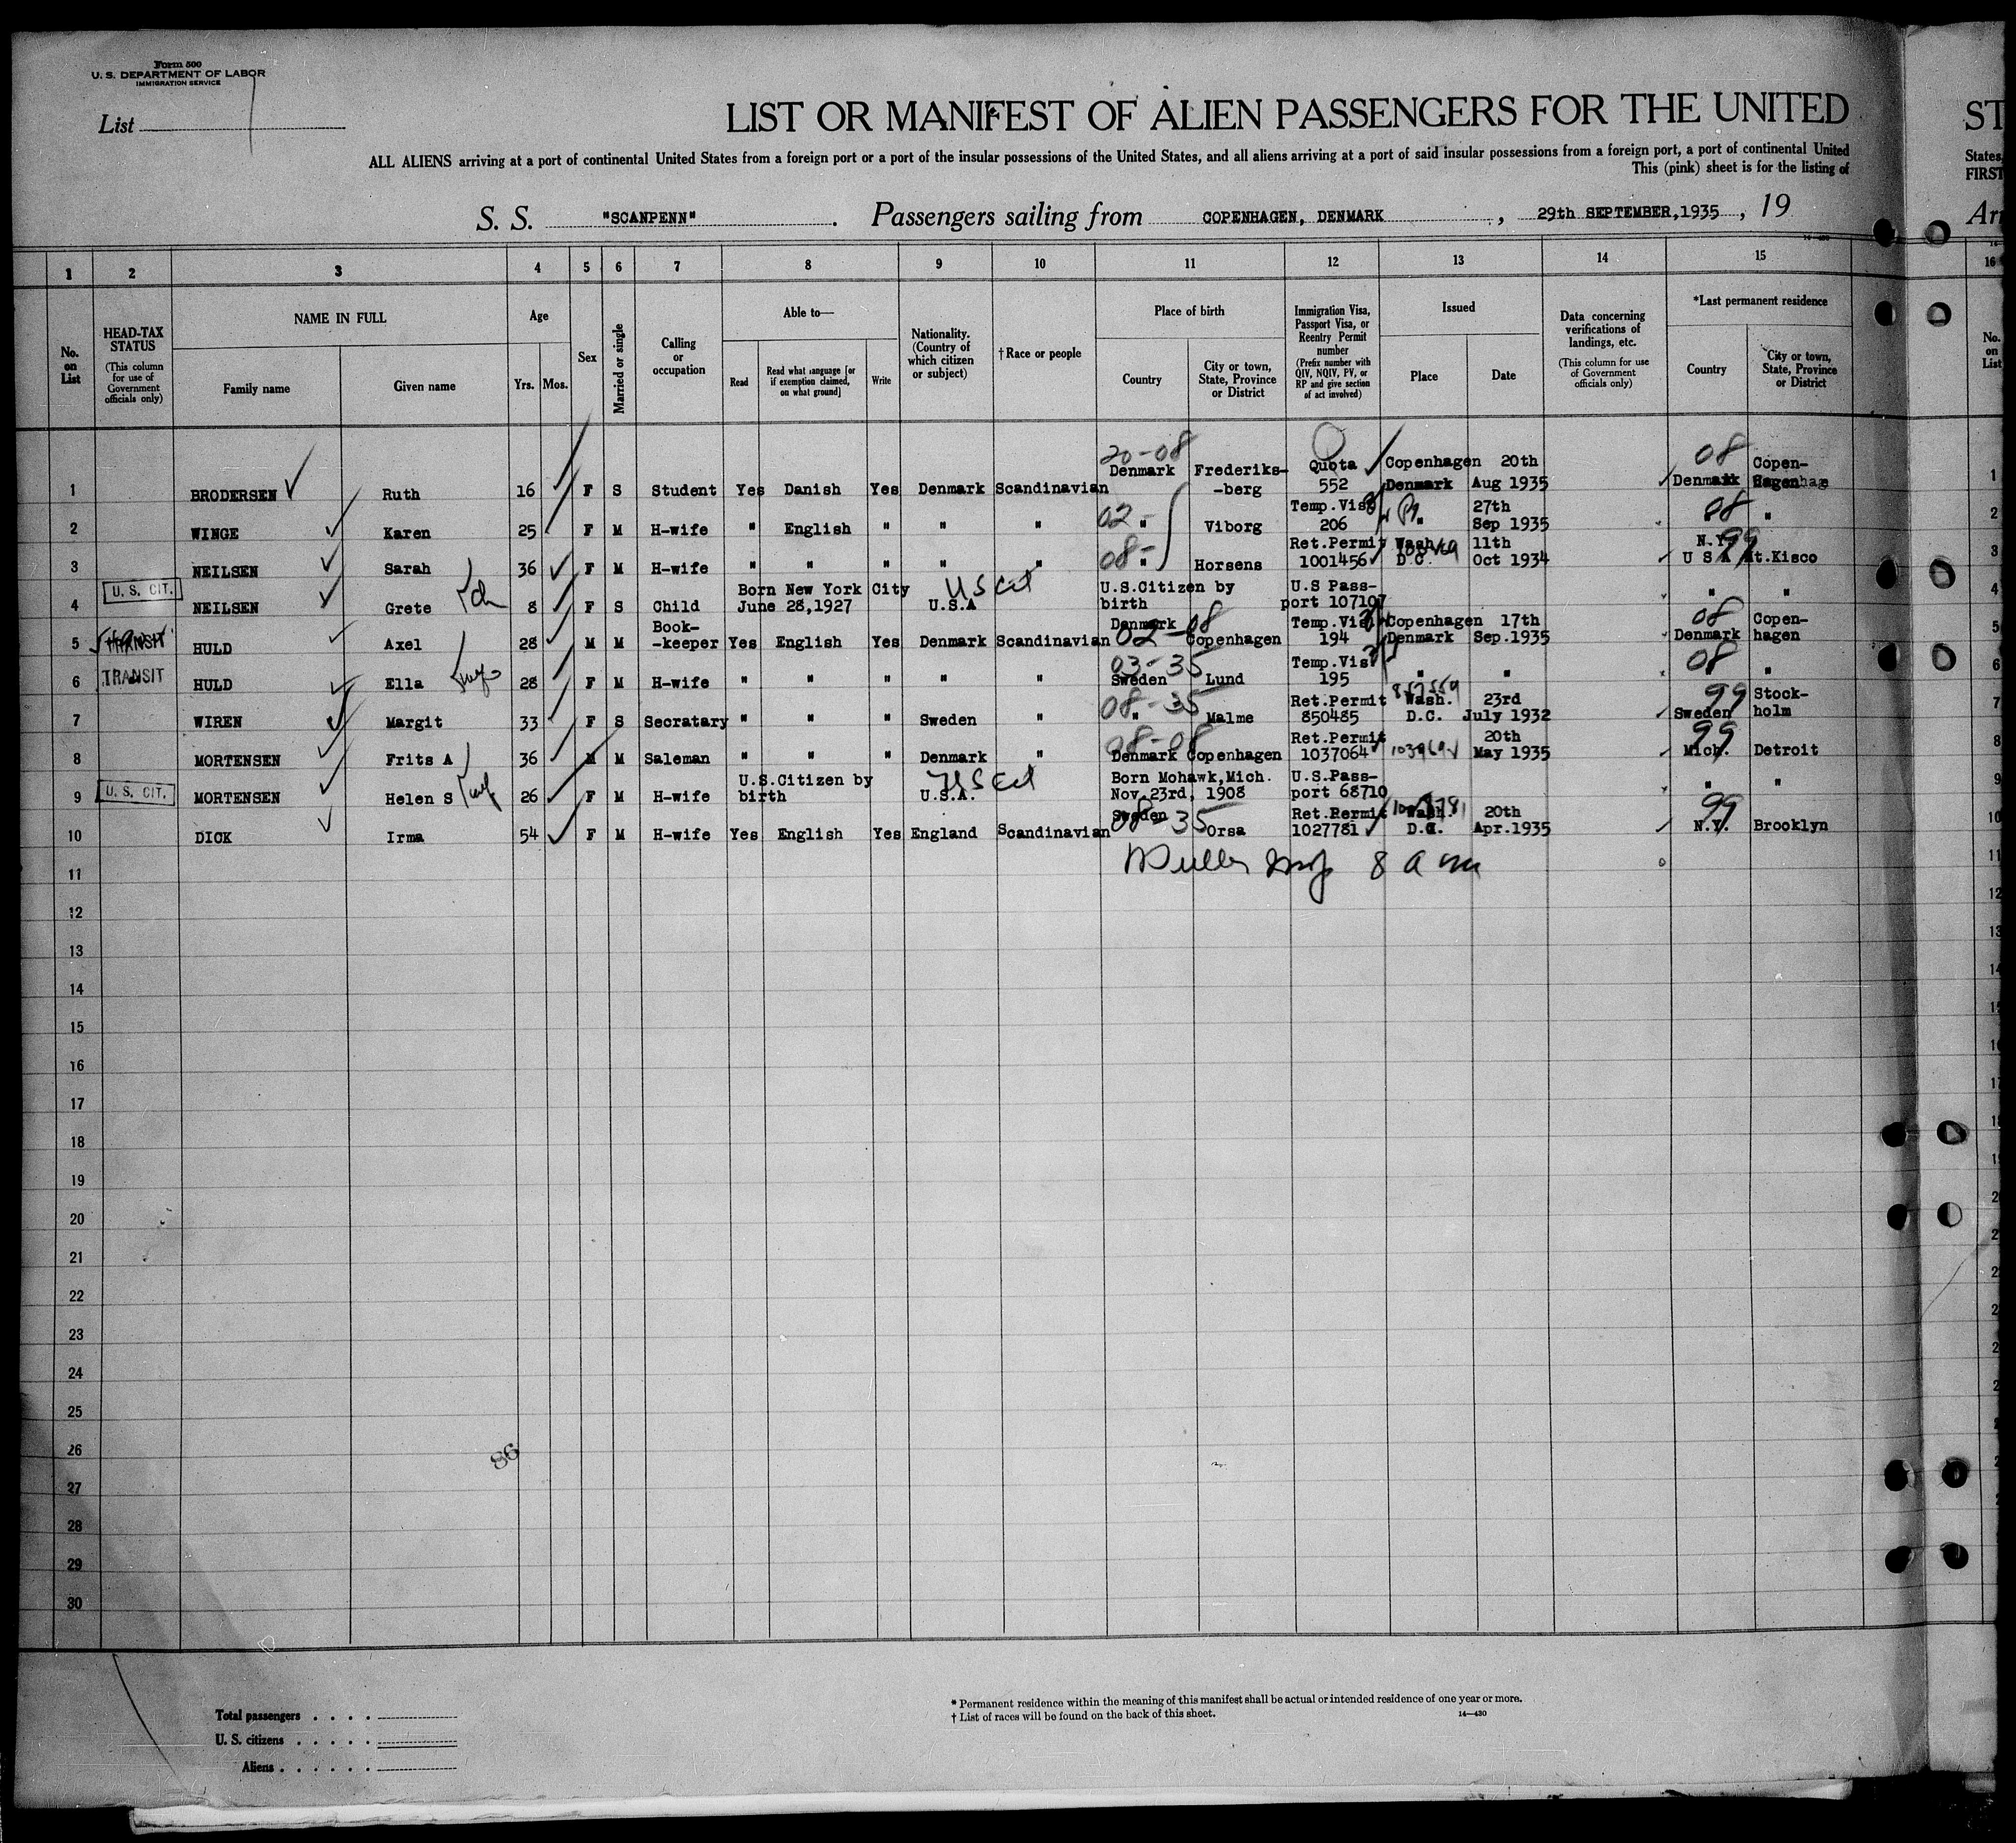 Form 500
U. S. DEPARTMENT OF LABOR
IMMIGRATION SERVICE
List 1
LIST OR MANIFEST OF ALIEN PASSENGERS FOR THE UNITED
ST
ALL ALIENS arriving at a port of continental United States from a foreign port or a port of the insular possessions of the United States, and all aliens arriving at a port of said insular possessions from a foreign port, a port of continental United
States,
This (pink) sheet is for the listing of
FIRST
S. S. "SCANPENN". Passengers sailing from COPENHAGEN, DENMARK, 29th SEPTEMBER,1935, 19
1 2 3 4 5 6 7 8 9 10 11 12 13 14 15 16
No. on List
HEAD-TAX STATUS (This column for use of Government officials only)
NAME IN FULL
Family name
Given name
Age
Yrs. Mos.
Sex
Married or single
Calling or occupation
Able to—
Read
Read what language [or if exemption claimed, on what ground]
Write
Nationality. (Country of which citizen or subject)
†Race or people
Place of birth
Country
City or town, State, Province or District
Immigration Visa, Passport Visa, or Reentry Permit number (Prefix number with QIV, NQIV, PV, or RP and give section of act involved)
Issued
Place
Date
Data concerning verifications of landings, etc. (This column for use of Government officials only)
*Last permanent residence
Country
City or town, State, Province or District
No. on List
20-08 08
1 BRODERSEN Ruth 16 F S Student Yes Danish Yes Denmark Scandinavian Denmark Frederiks- -berg Quota 552 Copenhagen Denmark 20th Aug 1935 Denmark Copen- 1
02- 08
2 WINGE Karen 25 F M H-wife " English " " " " Viborg Temp.Vis 206 " 27th Sep 1935 " 2
08- 99
3 NEILSEN Sarah 36 F M H-wife " " " " " " Horsens Ret.Permit 1001456 Wash. D.C. 11th Oct 1934 N.Y. U S A Mt.Kisco 3
U. S. CIT. US Cit
4 NEILSEN Grete 8 F S Child Born New York City June 28,1927 U.S.A U.S.Citizen by birth U.S Pass- port 107107 " " 4
TRANSIT 02-08 08
5 HULD Axel 28 M M Book- -keeper Yes English Yes Denmark Scandinavian Denmark Copenhagen Temp.Vis 194 Copenhagen Denmark 17th Sep.1935 Denmark Copen- hagen 5
TRANSIT 03-35 08
6 HULD Ella 28 F M H-wife " " " " " Sweden Lund Temp.Vis 195 " " " 6
08-35 99
7 WIREN Margit 33 F S Secratary " " " Sweden " " Malme Ret.Permit 850485 Wash. D.C. 23rd July 1932 Sweden Stock- holm 7
08-08 99
8 MORTENSEN Frits A 36 M M Saleman " " " Denmark " Denmark Copenhagen Ret.Permit 1037064 20th May 1935 Mich. Detroit 8
U. S. CIT. US Cit
9 MORTENSEN Helen S 26 F M H-wife U.S.Citizen by birth U.S.A. Born Mohawk,Mich. Nov.23rd, 1908 U.S.Pass- port 68710 " " 9
08-35 99
10 DICK Irma 54 F M H-wife Yes English Yes England Scandinavian Sweden Orsa Ret.Permit 1027781 Wash. D.C. 20th Apr.1935 N.Y. Brooklyn 10
8 a m
11 11
12 12
13 13
14 14
15 15
16
17
18
19
20
21
22
23
24
25
26
86
27
28
29
30
Total passengers . . . .
U. S. citizens . . . . .
Aliens . . . . . .
* Permanent residence within the meaning of this manifest shall be actual or intended residence of one year or more.
† List of races will be found on the back of this sheet.
14—430